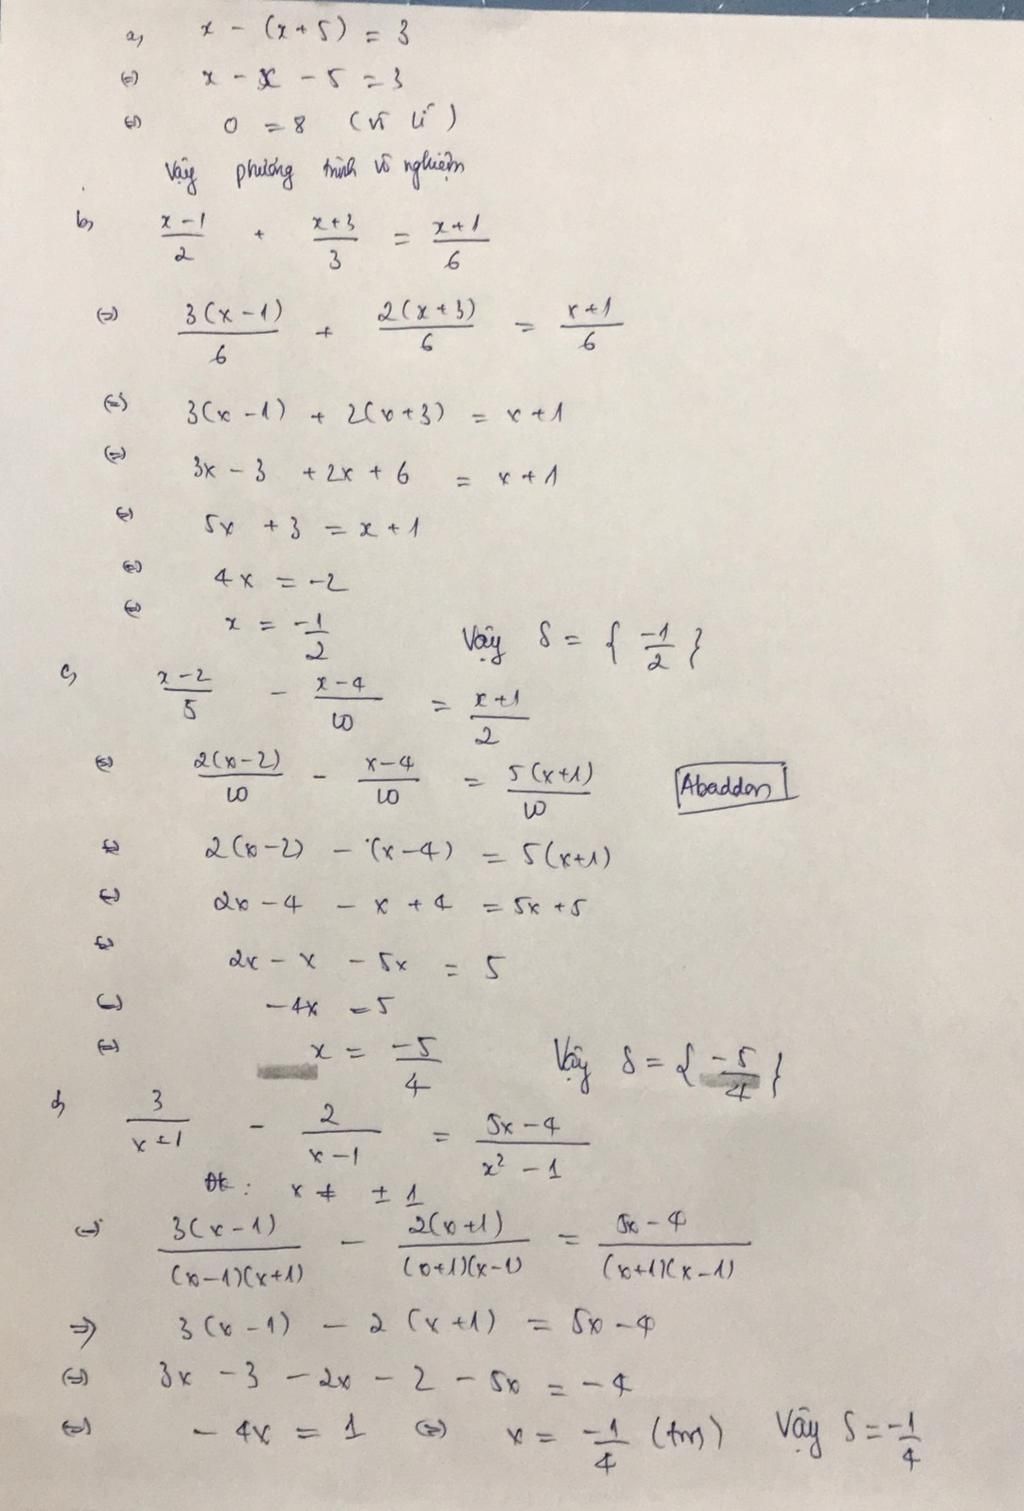 a, x - (x + 5) = 3
(=) x - x - 5 = 3
(=) 0 = 8 (vô lí)
Vậy phương trình vô nghiệm
b, \frac{x-1}{2} + \frac{x+3}{3} = \frac{x+1}{6}
(=) \frac{3(x-1)}{6} + \frac{2(x+3)}{6} = \frac{x+1}{6}
(=) 3(x-1) + 2(x+3) = x+1
(=) 3x - 3 + 2x + 6 = x+1
(=) 5x + 3 = x + 1
(=) 4x = -2
(=) x = \frac{-1}{2} Vậy S = { \frac{-1}{2} }
c, \frac{x-2}{5} - \frac{x-4}{10} = \frac{x+1}{2}
(=) \frac{2(x-2)}{10} - \frac{x-4}{10} = \frac{5(x+1)}{10} Abaddon
(=) 2(x-2) - (x-4) = 5(x+1)
(=) 2x - 4 - x + 4 = 5x + 5
(=) 2x - x - 5x = 5
(=) -4x = 5
(=) x = \frac{-5}{4} Vậy S = { \frac{-5}{4} }
d, \frac{3}{x+1} - \frac{2}{x-1} = \frac{5x-4}{x² - 1}
Đk: x ≠ ± 1
(=) \frac{3(x-1)}{(x-1)(x+1)} - \frac{2(x+1)}{(x+1)(x-1)} = \frac{5x-4}{(x+1)(x-1)}
=> 3(x-1) - 2(x+1) = 5x-4
(=) 3x - 3 - 2x - 2 - 5x = -4
(=) -4x = 1 (=) x = \frac{-1}{4} (tm) Vậy S = \frac{-1}{4}